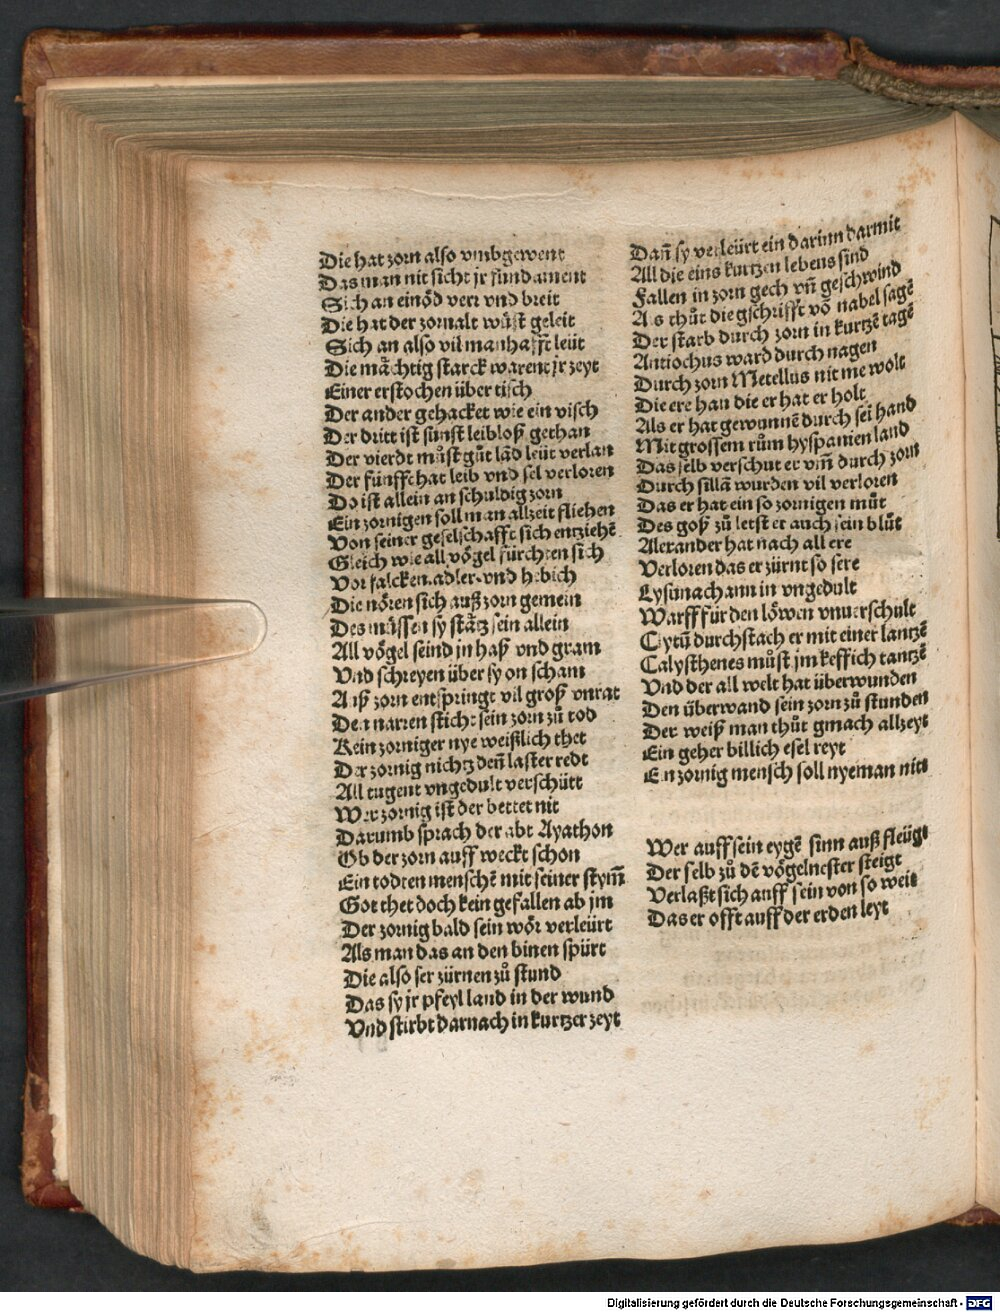 Die hat zorn also vmbgewent
Das man nit sicht jr fundament
Sich an einöd vert vnd breit
Die hat der zornalt wuͤst geleit
Sich an also vil manhafft leüt
Die mächtig starck warent jr zeyt
Einer erstochen über tisch
Der ander gehacket wie ein visch
Der dritt ist sunst leibloß gethan
Der vierdt muͦst guͦt lād leüt verlan
Der fünfft hat leib vnd sel verloren
Do ist allein an schuldig zorn
Ein zornigen soll man allzeit fliehen
Von seiner geselschafft sich entziehē
Gleich wie all vögel fürchten sich
Vor falcken. adler. vnd habich
Die nören sich auß zorn gemein
Des müssen sy stätz sein allein
All vögel seind jn haß vnd gram
Vnd schreyen über sy on scham
Auß zorn entspringt vil groß vnrat
Den narren sticht sein zorn zuͦ tod
Kein zorniger nye weißlich thet
Der zornig nichtz deñ laster redt
All tugent vngedult verschütt
Wer zornig ist der bettet nit
Darumb sprach der abt Ayathon
Ob der zorn auff weckt schon
Ein todten menschē mit seiner stym̄
Got thet doch kein gefallen ab jm
Der zornig bald sein wör verleürt
Als man das an den binen spürt
Die also ser zürnen zuͦ stund
Das sy jr pfeyl land in der wund
Vnd stirbt darnach in kurtzer zeyt
Dañ sy verleürt ein darinn darmit
All die eins kurtzen lebens sind
Fallen in zorn gech vñ geschwind
Als thuͦt die gschrifft vō nabel sagē
Der starb durch zorn in kurtzē tagē
Antiochus ward durch nagen
Durch zorn Metellus nit me wolt
Die ere han die er hat er holt
Als er hat gewunnē durch sei hand
Mit grossem ruͦm hyspanien land
Das selb verschut er vm̄ durch zorn
Durch sillā wurden vil verloren
Das er hat ein so zornigen muͦt
Des goß zuͦ letst er auch sein bluͦt
Alexander hat nach all ere
Verloren das er zürnt so sere
Lysimach ann in vngedult
Warff für den löwen vnuerschult
Clytū durchstach er mit einer lantzē
Calysthenes muͦst jm keffich tantzē
Vnd der all welt hat überwunden
Den überwand sein zorn zuͦ stunden
Der weiß man thuͦt gmach allzeyt
Ein geher billich esel reyt
Ein zornig mensch soll nyeman nit
Wer auff sein eygē sinn auß fleügt
Der selb zuͦ dē vögelnester steigt
Verlaßt sich auff sein von so weit
Das er offt auff der erden leyt
Digitalisierung gefördert durch die Deutsche Forschungsgemeinschaft - DFG